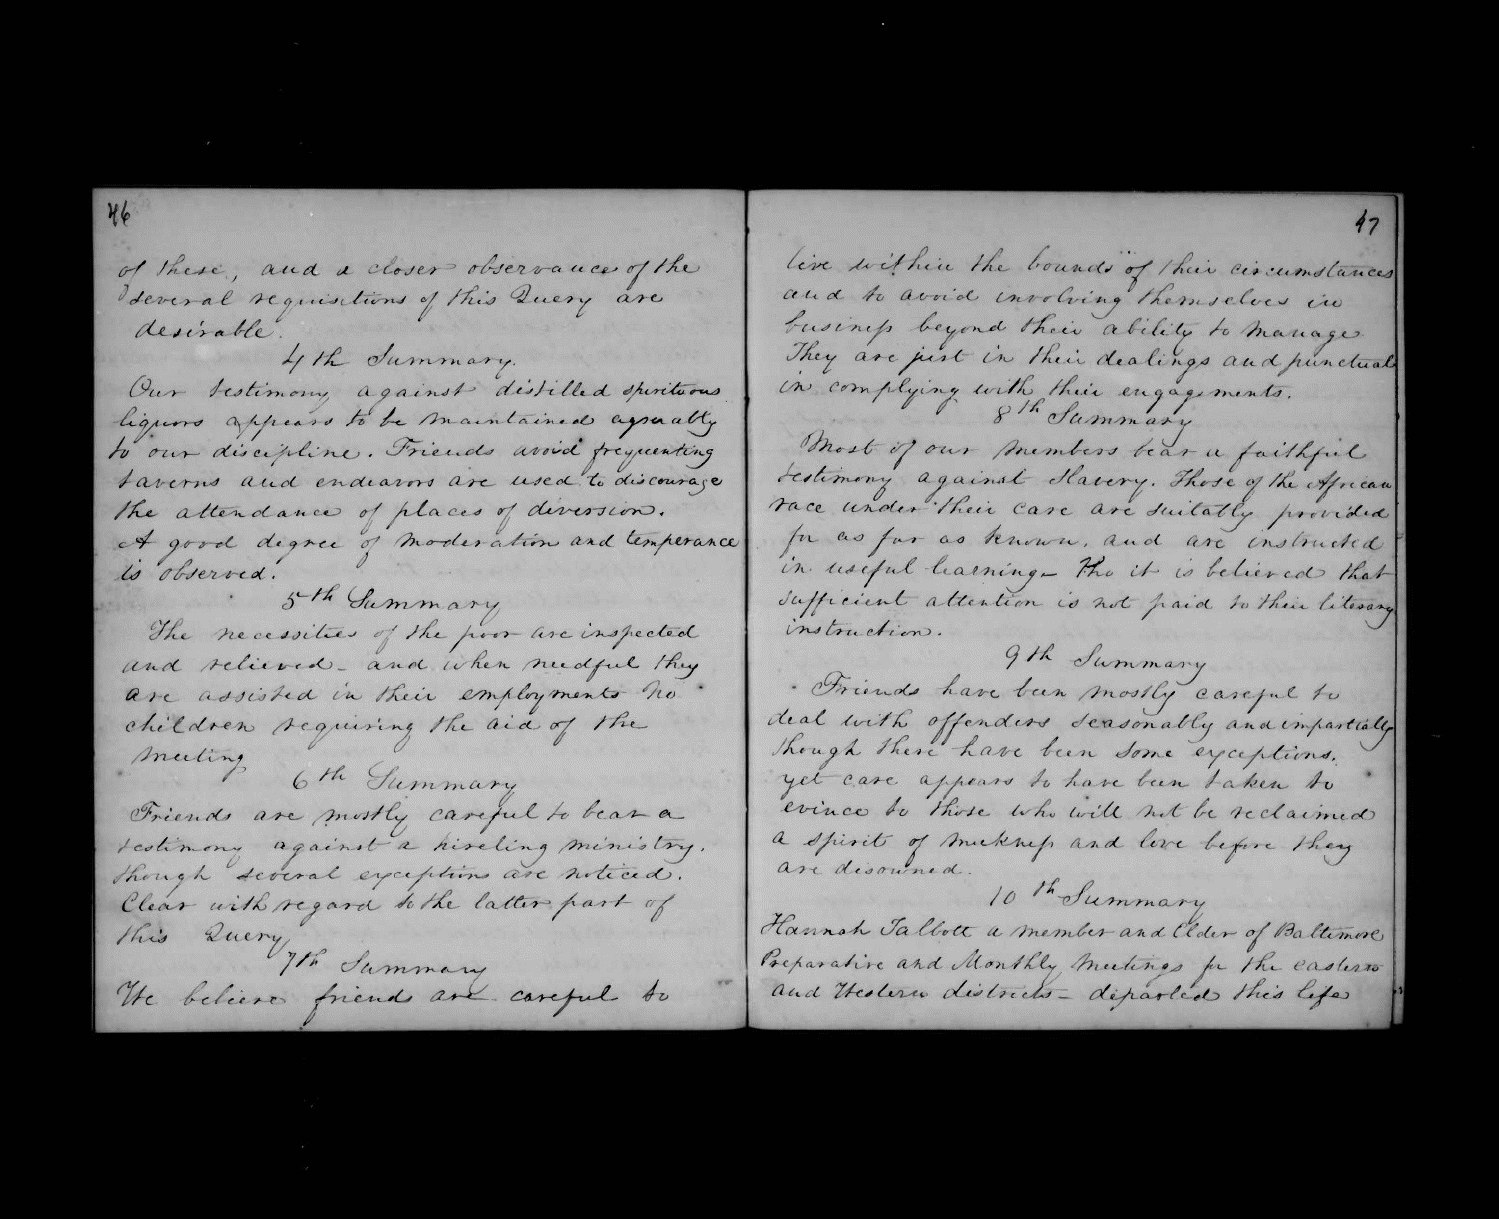 46
of these, and a closer observance of the
several requisitions of this Query are
desirable.
4th Summary.
Our testimony against distilled spirituous
liquors appears to be maintained agreeably
to our discipline. Friends avoid frequenting
taverns and endeavors are used to discourage
the attendance of places of diversion.
A good degree of moderation and temperance
is observed.
5th Summary
The necessities of the poor are inspected
and relieved - and when needful they
are assisted in their employments No
children requiring the aid of the
meeting
6th Summary
Friends are mostly careful to bear a
testimony against a hireling ministry.
though several exceptions are noticed.
Clear with regard to the latter part of
this Query
7th Summary
We believe friends are careful to
47
live within the bounds of their circumstances
and to avoid involving themselves in
business beyond their ability to manage
They are just in their dealings and punctual
in complying with their engagements.
8th Summary
Most of our members bear a faithful
testimony against Slavery. Those of the African
race under their care are suitably provided
for as far as known. and are instructed
in useful learning - Tho it is believed that
sufficient attention is not paid to their literary
instruction.
9th Summary
Friends have been mostly careful to
deal with offenders seasonably and impartially
though there have been some exceptions.
yet care appears to have been taken to
evince to those who will not be reclaimed
a spirit of meekness and love before they
are disowned.
10th Summary
Hannah Talbott a member and Elder of Baltimore
Preparative and Monthly meetings for the eastern
and Western districts - departed this life